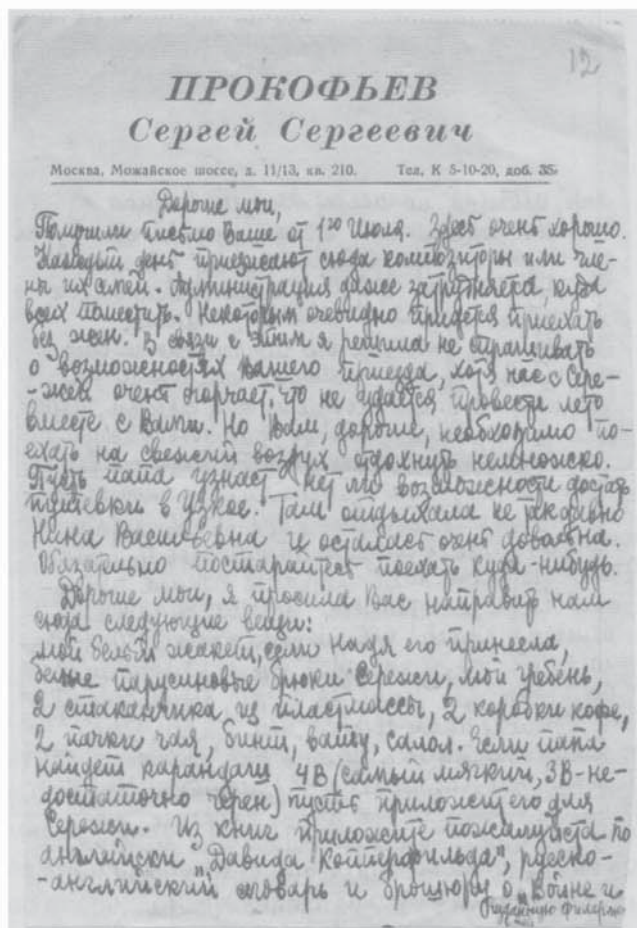 12
ПРОКОФЬЕВ
Сергей Сергеевич
Москва, Можайское шоссе, д. 11/13, кв. 210. Тел. К 5-10-20, доб. 35.
Дорогие мои,
Получили письмо Ваше от 1го Июля. Здесь очень хорошо.
Каждый день приезжают сюда композиторы или чле-
ны их семей. Администрация даже затрудняется, куда
всех поместить. Некоторым очевидно придется приехать
без жен. В связи с этим я решила не спрашивать
о возможностях Вашего приезда, хотя нас с Сере-
-жей очень огорчает, что не удается провести лето
вместе с Вами. Но Вам, дорогие, необходимо по-
ехать на свежий воздух отдохнуть немножко.
Пусть папа узнает нет ли возможности достать
путевки в Узкое. Там отдыхала не так давно
Нина Васильевна и осталась очень довольна.
Обязательно постарайтесь поехать куда-нибудь.
Дорогие мои, я просила Вас направить нам
сюда следующие вещи:
мой белый жакет, если Надя его принесла,
белые парусиновые брюки Сережи, мой гребень,
2 стаканчика из пластмассы, 2 коробки кофе,
2 пачки чая, бинт, вату, салол. Если папа
найдет карандаш 4В (самый мягкий, 3В-не-
достаточно черен) пусть приложит его для
Сережи. Из книг приложите пожалуйста по
английски „Давида Копперфильда", русско-
-английский словарь и брошюру о „Войне и